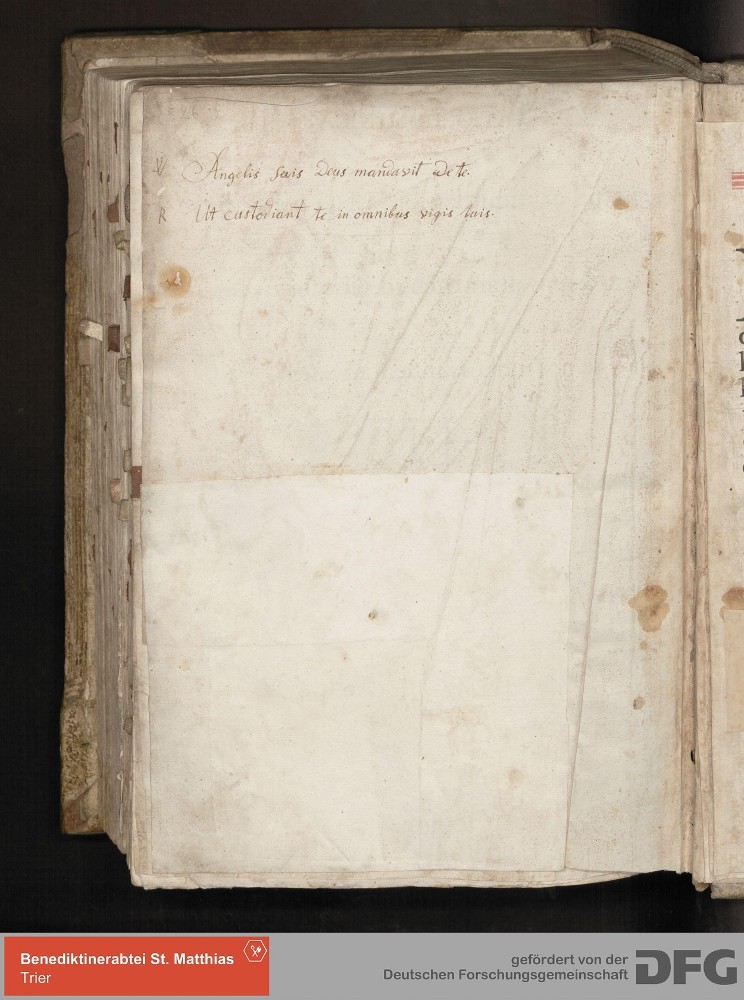 26
℣ Angelis suis Deus mandavit de te.
R Ut custodiant te in omnibus vigis tuis.
Benediktinerabtei St. Matthias
Trier
gefördert von der
Deutschen Forschungsgemeinschaft
DFG